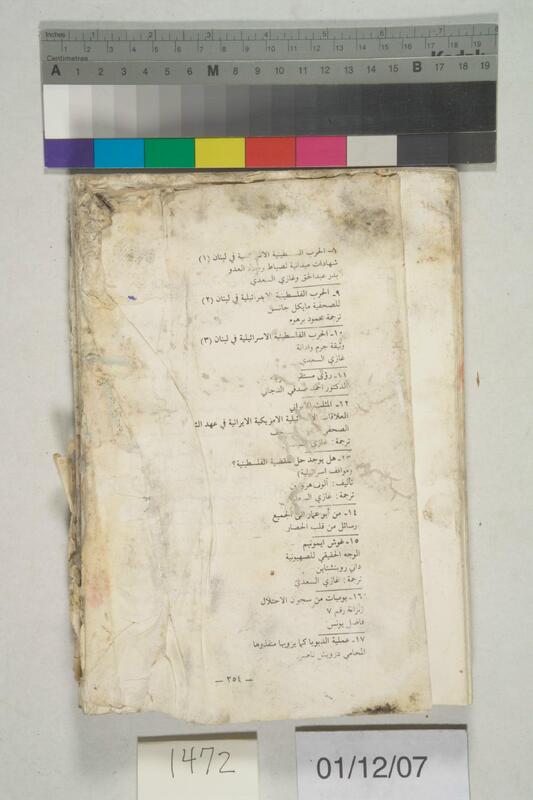 Inches 1 2 3 4 5 6 7
1 2 3 4 5 6 7 8 9 10 11 12 13 14 15 16 17 18 19
Centimetres
A 1 2 3 4 5 6 M 8 9 10 11 12 13 14 15 B 17 18 19
٨- الحرب الفلسطينية الاسرائيلية في لبنان (١)
شهادات ميدانية لضباط وجنود العدو
بدر عبدالحق وغازي السعدي
٩- الحرب الفلسطينية الاسرائيلية في لبنان (٢)
للصحفية مايكل جانسن
ترجمة محمود برهوم
١٠- الحرب الفلسطينية الاسرائيلية في لبنان (٣)
وثيقة جرم وادانة
غازي السعدي
١١- رؤى
الدكتور احمد صدقي الدجاني
١٢- المثلث الايراني
العلاقات الاسرائيلية الامريكية الايرانية في عهد
الصحفي
ترجمة: غازي
١٣- هل يوجد حل للقضية الفلسطينية؟
(مواقف اسرائيلية)
تأليف: ألوف
ترجمة: غازي السعدي
١٤- من أبو عمار الى الجميع
رسائل من قلب الحصار
١٥- غوش ايمونيم
الوجه الحقيقي للصهيونية
داني روبنشتاين
ترجمة: غازي السعدي
١٦- يوميات من سجون الاحتلال
زنزانة رقم ٧
فاضل يونس
١٧- عملية الدبويا كما يرويها منفذوها
المحامي درويش ناصر
— ٣٥٤ —
1472
01/12/07